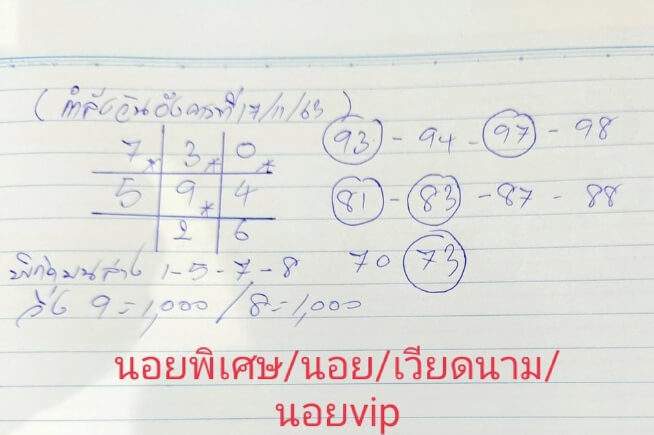 (กำลังวันอังคารที่ 17/11/63)
7 3 0
5 9 4
2 6
93 - 94 - 97 - 98
81 - 83 - 87 - 88
70 73
บน ล่าง 1-5-7-8
วิ่ง 9=1,000 / 8=1,000
นอยพิเศษ/นอย/เวียดนาม/
นอยvip